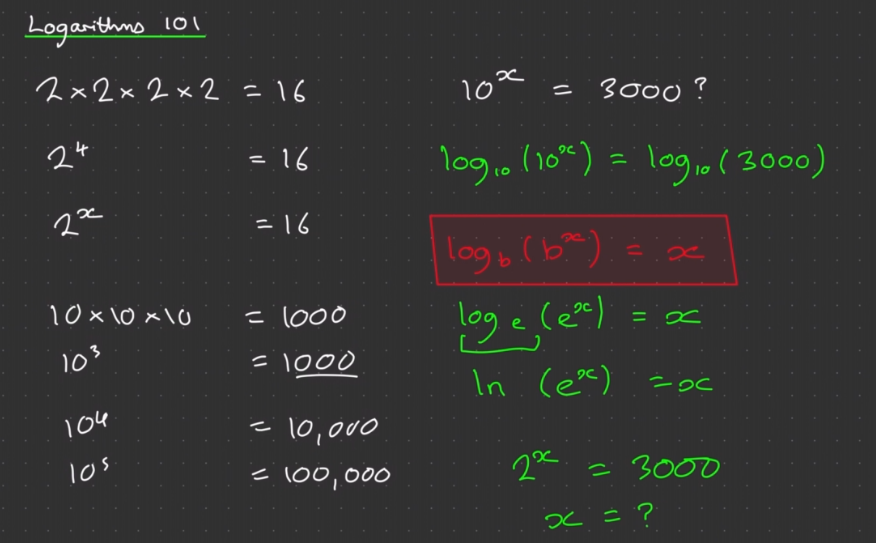 Logarithms 101
2 × 2 × 2 × 2 = 16
2⁴ = 16
2ˣ = 16
10 × 10 × 10 = 1000
10³ = 1000
10⁴ = 10,000
10⁵ = 100,000
10ˣ = 3000?
log₁₀(10ˣ) = log₁₀(3000)
log_b(bˣ) = x
logₑ(eˣ) = x
ln (eˣ) = x
2ˣ = 3000
x = ?